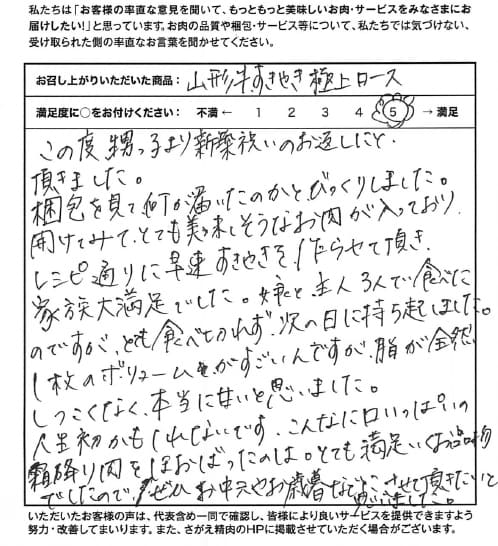 私たちは「お客様の率直な意見を聞いて、もっともっと美味しいお肉・サービスをみなさまにお
届けしたい！」と思っています。お肉の品質や梱包・サービス等について、私たちでは気づけない、
受け取られた側の率直なお言葉を聞かせてください。
お召し上がりいただいた商品： 山形牛すきやき極上ロース
満足度に○をお付けください： 不満 ← 1 2 3 4 5 → 満足
この度 甥っ子より新築祝いのお返しにと、
頂きました。
梱包を見て何が届いたのかと、びっくりしました。
開けてみて、とても美味しそうなお肉が入っており、
レシピ通りに早速すきやきを作らせて頂き、
家族大満足でした。娘と、主人3人で食べた
のですが、とても食べ切れず、次の日に持ち越しました。
1枚のボリュームもがすごいんですが、脂が全然、
しつこくなく、本当に甘いと思いました。
人生初かもしれないです、こんなに口いっぱいの
霜降り肉をほおばったのは。とても満足いくお品物
でしたので、ぜひお中元やお歳暮など 
させて頂きたいと
思いました。
いただいたお客様の声は、代表含め一同で確認し、皆様により良いサービスを提供できますよう
努力・改善してまいります。また、さがえ精肉のHPに掲載させていただく場合がございます。